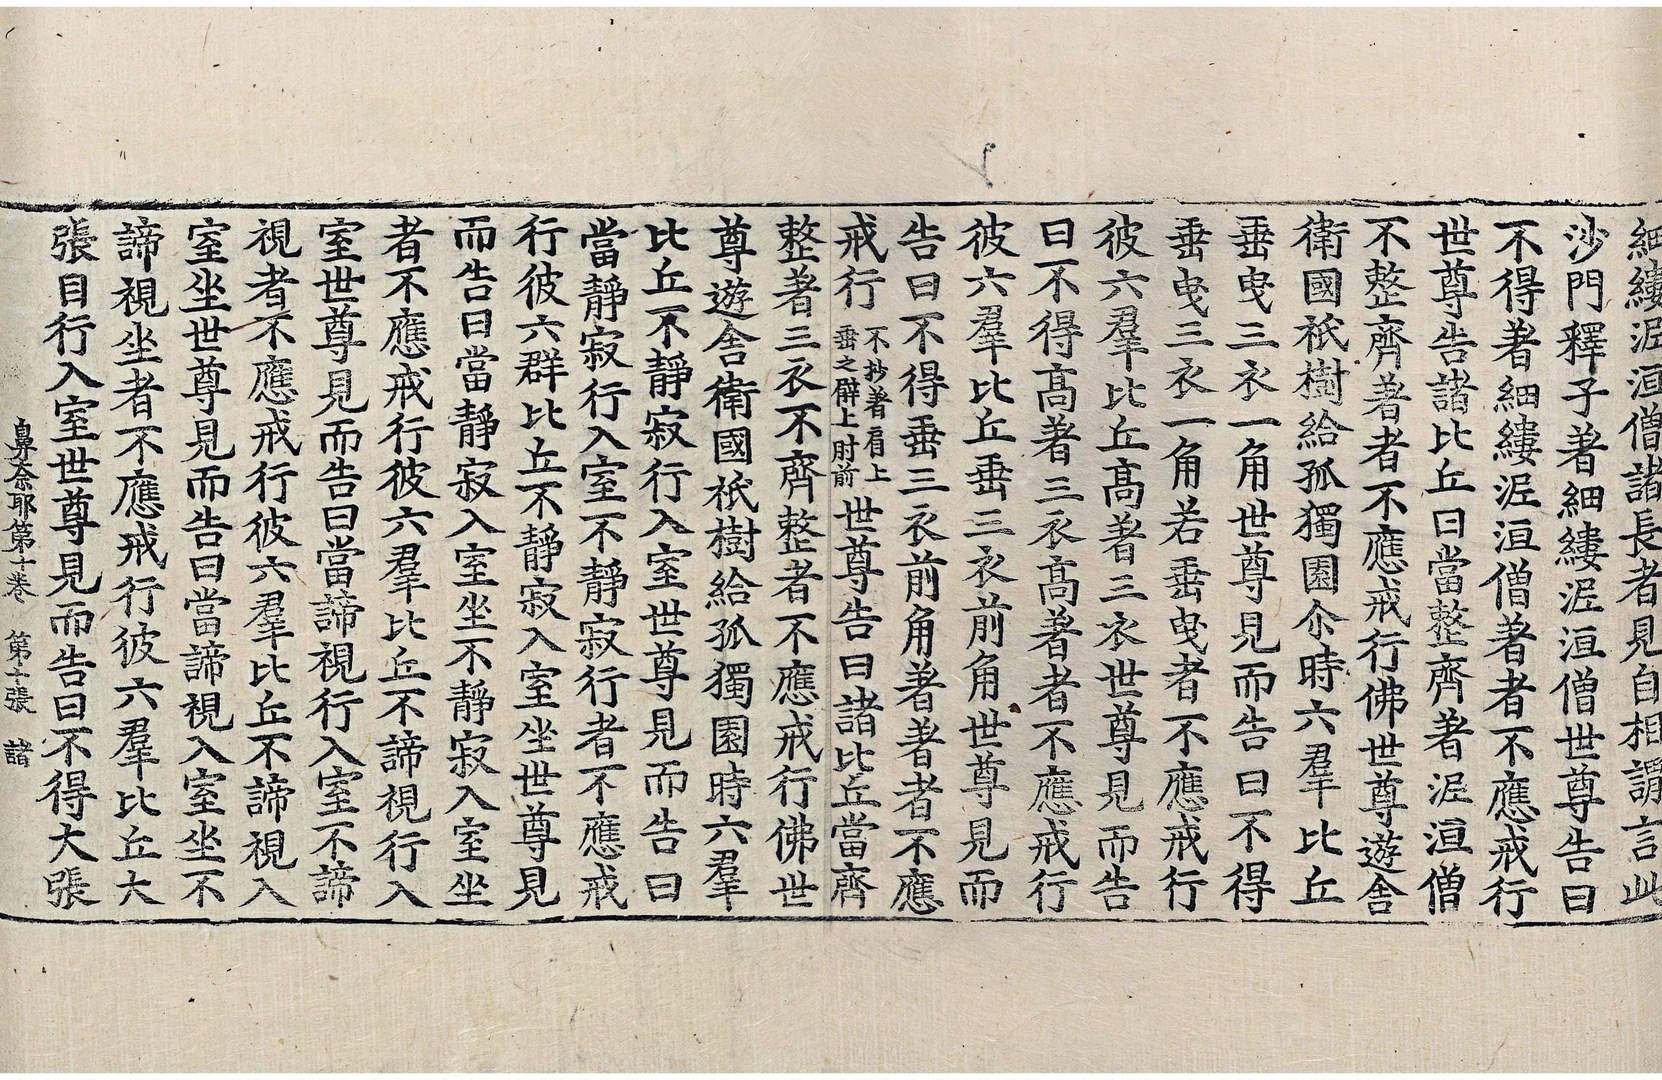 細縷泥洹僧諸長者見自相謂言此
沙門釋子著細縷泥洹僧世尊告曰
不得著細縷泥洹僧著者不應戒行
世尊告諸比丘曰當整齊著泥洹僧
不整齊著者不應戒行佛世尊遊舍
衛國祇樹給孤獨園尒時六羣比丘
垂曳三衣一角世尊見而告曰不得
垂曳三衣一角若垂曳者不應戒行
彼六羣比丘高著三衣世尊見而告
曰不得高著三衣高著者不應戒行
彼六羣比丘垂三衣前角世尊見而
告曰不得垂三衣前角著著者不應
戒行不抄著肩上垂之臂上肘前世尊告曰諸比丘當齊
整著三衣不齊整者不應戒行佛世
尊遊舍衛國祇樹給孤獨園時六羣
比丘不靜寂行入室世尊見而告曰
當靜寂行入室不靜寂行者不應戒
行彼六群比丘不靜寂入室坐世尊見
而告曰當靜寂入室坐不靜寂入室坐
者不應戒行彼六羣比丘不諦視行入
室世尊見而告曰當諦視行入室不諦
視者不應戒行彼六羣比丘不諦視入
室坐世尊見而告曰當諦視入室坐不
諦視坐者不應戒行彼六羣比丘大
張目行入室世尊見而告曰不得大張
鼻奈耶第十卷 第十張 諸